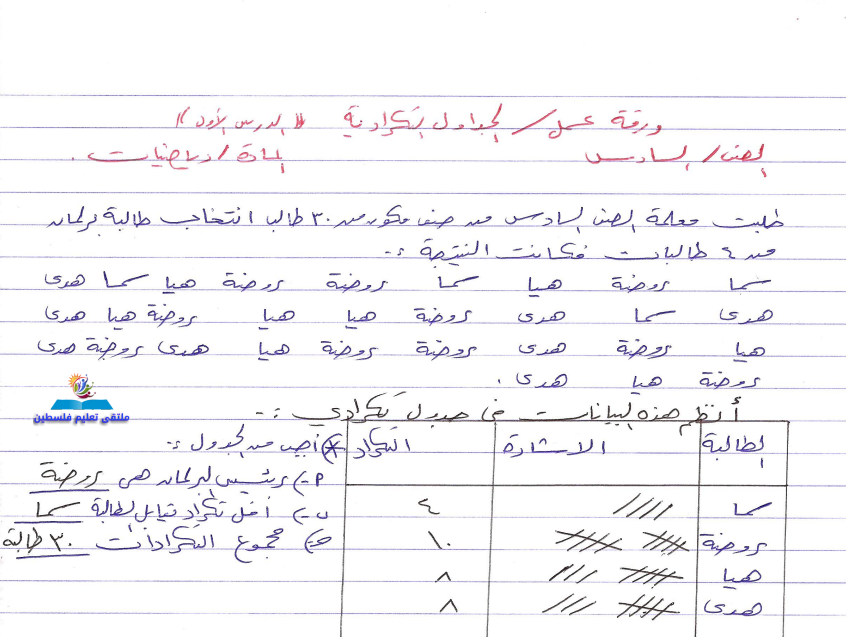 ورقة عمل / الجداول التكرارية "الدرس الأول"
الصف / السادس المادة / رياضيات .
طلبت معلمة الصف السادس من صف مكون من ٣٠ طالبا انتخاب طالبة برلمان
من ٤ طالبات فكانت النتيجة :-
سما روضة هيا سما روضة روضة هيا سما هدى
هدى سما هدى روضة هيا هيا روضة هيا هدى
هيا روضة هدى روضة روضة هيا هدى روضة هدى
روضة هيا هدى .
أنظم هذه البيانات في جدول تكراري :-
الطالبة الاشارة التكرار
سما //// ٤
روضة //// //// ١٠
هيا //// /// ٨
هدى //// /// ٨
* أجيب من الجدول :-
أ-) رئيس البرلمان هي روضة
ب-) أقل تكرار تقابل الطالبة سما
ج-) مجموع التكرارات ٣٠ طالبة
ملتقى تعليم فلسطين